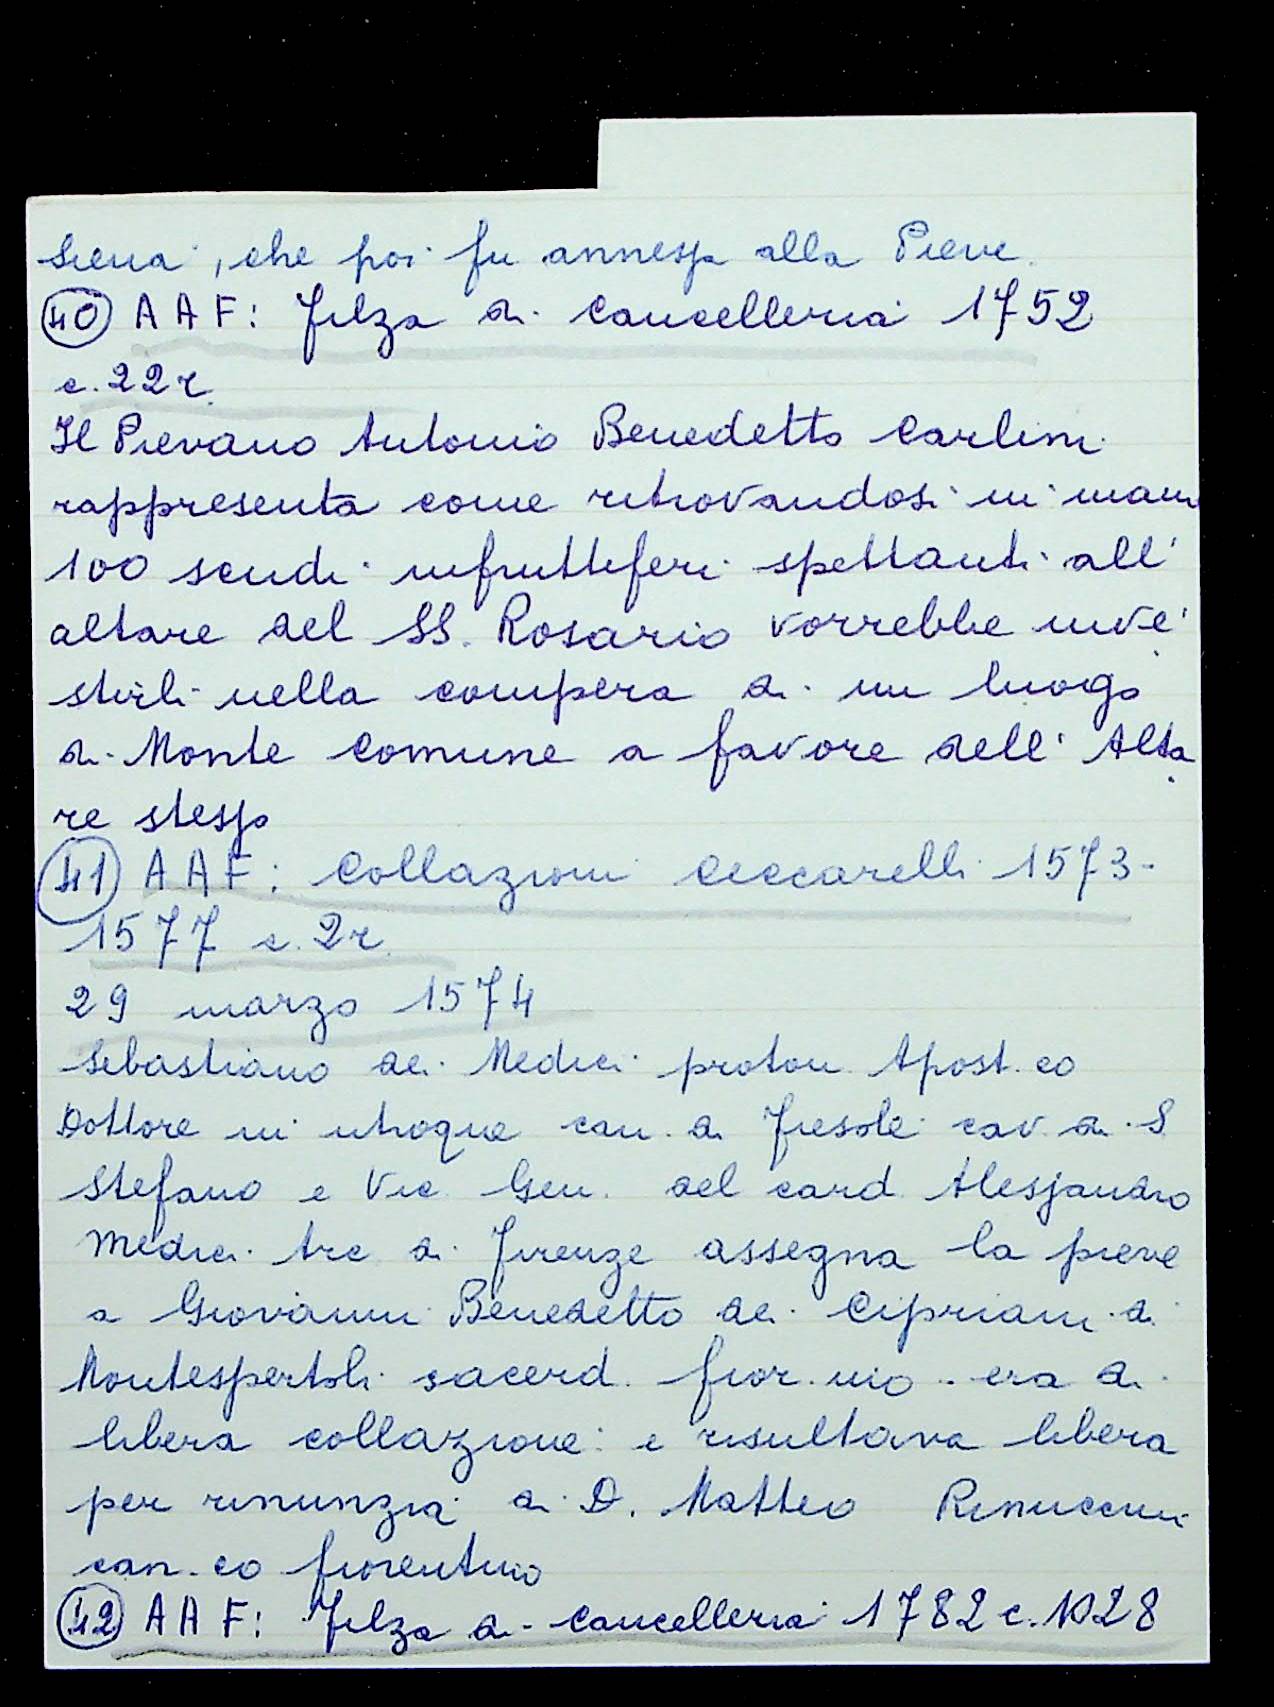 Siena, che poi fu annessa alla Pieve.
40 A A F: Filza di Cancelleria 1752
c. 22 r.
Il Pievano Antonio Benedetto Carlini
rappresenta come ritrovandosi in mano
100 scudi infruttiferi spettanti all'
altare del SS. Rosario vorrebbe inve
stirli nella compera di un luogo
di Monte Comune a favore dell'Alta
re stesso
41 A A F: Collazioni Ceccarelli 1573-
1577 c. 2r.
29 marzo 1574
Sebastiano dei Medici proton. Apost.co
Dottore in utroque can. di Fiesole cav. di S.
Stefano e Vic. Gen. del card. Alessandro
Medici Arc. di Firenze assegna la pieve
a Giovanni Benedetto dei Cipriani di
Montespertoli sacerd. fior.nio.. era di
libera collazione e risultava libera
per rinunzia di D. Matteo Rinuccini
can.co fiorentino
42 A A F: Filza di Cancelleria 1782 c. 1028